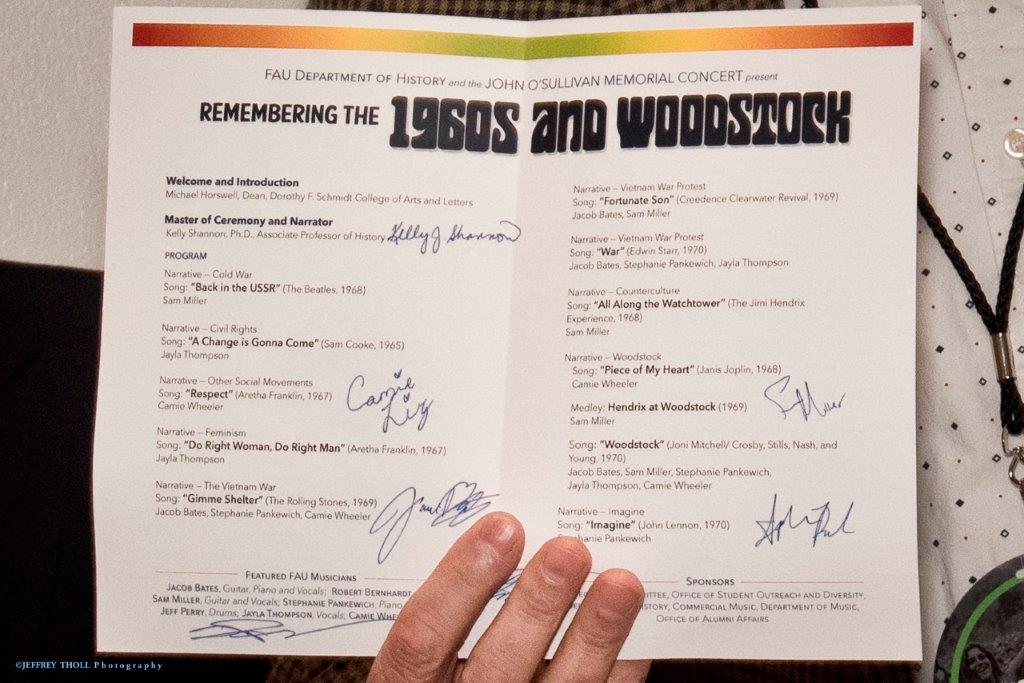 FAU DEPARTMENT OF HISTORY and the JOHN O'SULLIVAN MEMORIAL CONCERT present
REMEMBERING THE 1960S AND WOODSTOCK
Welcome and Introduction
Michael Horswell, Dean, Dorothy F. Schmidt College of Arts and Letters
Master of Ceremony and Narrator
Kelly Shannon, Ph.D., Associate Professor of History Kelly J Shannon
PROGRAM
Narrative – Cold War
Song: "Back in the USSR" (The Beatles, 1968)
Sam Miller
Narrative – Civil Rights
Song: "A Change is Gonna Come" (Sam Cooke, 1965)
Jayla Thompson
Narrative – Other Social Movements
Song: "Respect" (Aretha Franklin, 1967)
Camie Wheeler
Narrative – Feminism
Song: "Do Right Woman, Do Right Man" (Aretha Franklin, 1967)
Jayla Thompson
Narrative – The Vietnam War
Song: "Gimme Shelter" (The Rolling Stones, 1969)
Jacob Bates, Stephanie Pankewich, Camie Wheeler
FEATURED FAU MUSICIANS
JACOB BATES, Guitar, Piano and Vocals; ROBERT BERNHARDT
SAM MILLER, Guitar and Vocals; STEPHANIE PANKEWICH, Piano
JEFF PERRY, Drums; JAYLA THOMPSON, Vocals; CAMIE
Narrative – Vietnam War Protest
Song: "Fortunate Son" (Creedence Clearwater Revival, 1969)
Jacob Bates, Sam Miller
Narrative – Vietnam War Protest
Song: "War" (Edwin Starr, 1970)
Jacob Bates, Stephanie Pankewich, Jayla Thompson
Narrative – Counterculture
Song: "All Along the Watchtower" (The Jimi Hendrix
Experience, 1968)
Sam Miller
Narrative – Woodstock
Song: "Piece of My Heart" (Janis Joplin, 1968)
Camie Wheeler
Medley: Hendrix at Woodstock (1969)
Sam Miller
Song: "Woodstock" (Joni Mitchell/ Crosby, Stills, Nash, and
Young, 1970)
Jacob Bates, Sam Miller, Stephanie Pankewich,
Jayla Thompson, Camie Wheeler
Narrative – Imagine
Song: "Imagine" (John Lennon, 1970)
Pankewich
SPONSORS
OFFICE OF STUDENT OUTREACH AND DIVERSITY,
COMMERCIAL MUSIC, DEPARTMENT OF MUSIC,
OFFICE OF ALUMNI AFFAIRS
©JEFFREY THOLL Photography